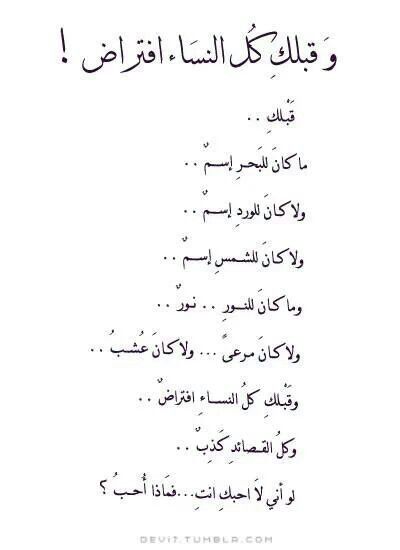 وَ قبلكِ كُل النسَاء افتراض !
قَبْلكِ . .
ما كانَ للبَحرِ إســمٌ . .
ولا كـانَ للوردِ إســمٌ . .
ولا كـانَ للشـمسِ إســمٌ . .
وما كـانَ للنـورِ . . نـورٌ . .
ولا كـانَ مـرعىً ... ولا كـانَ عُـشـبُ . .
وقَبْلكِ كلُ النسـاءِ افتراضٌ . .
وكلُ القـصـائدِ كَـذِبٌ . .
لو أني لاَ احبكِ انتِ...فمَاذا أُحـبُ ؟
DEVIT.TUMBLR.COM